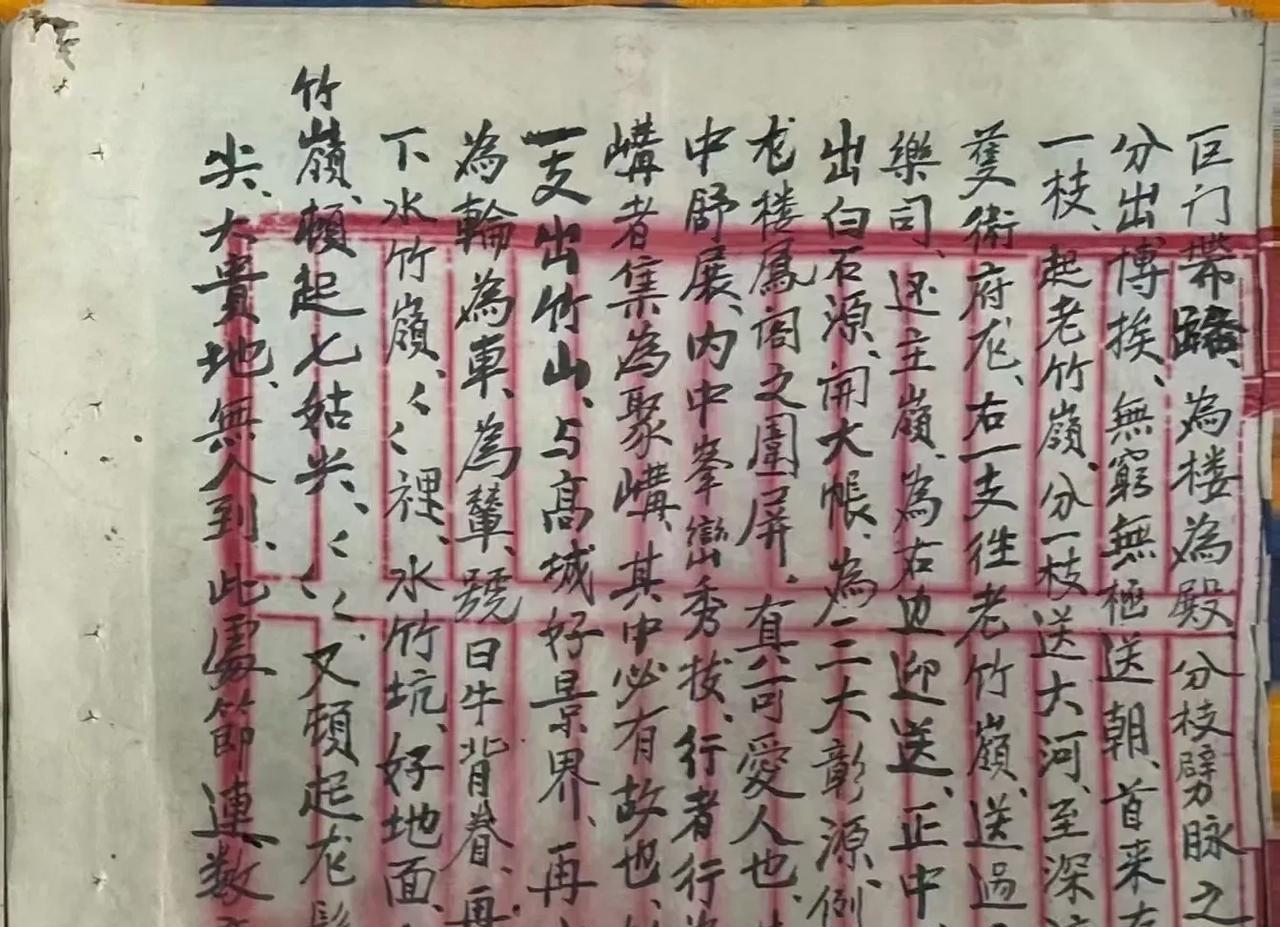 巨门带路、為楼為殿分枝劈脉之
分出博挨、無窮無極送朝、首来左
一枝、起老竹嶺、分一枝送大河、至深
䕶術府龙、右一支徃老竹嶺、送過
樂司、迳主嶺、為右边迎送、正中
出白石源、開大帳、為二大彰源、例
龙楼鳳阁之圍屏、真可愛人也、
中舒展、内中峯巒秀拔、行者行
嶙者集為聚嶙、其中必有故也、
一支出竹山、与高城好景界、再
為輪為車、為輦、號曰牛背脊、再
下水竹嶺、〻〻裡、水竹坑、好地面、
竹嶺、頓起七姑尖、〻〻〻、又頓起龙
尖、大貴地、無人到、此處節連数